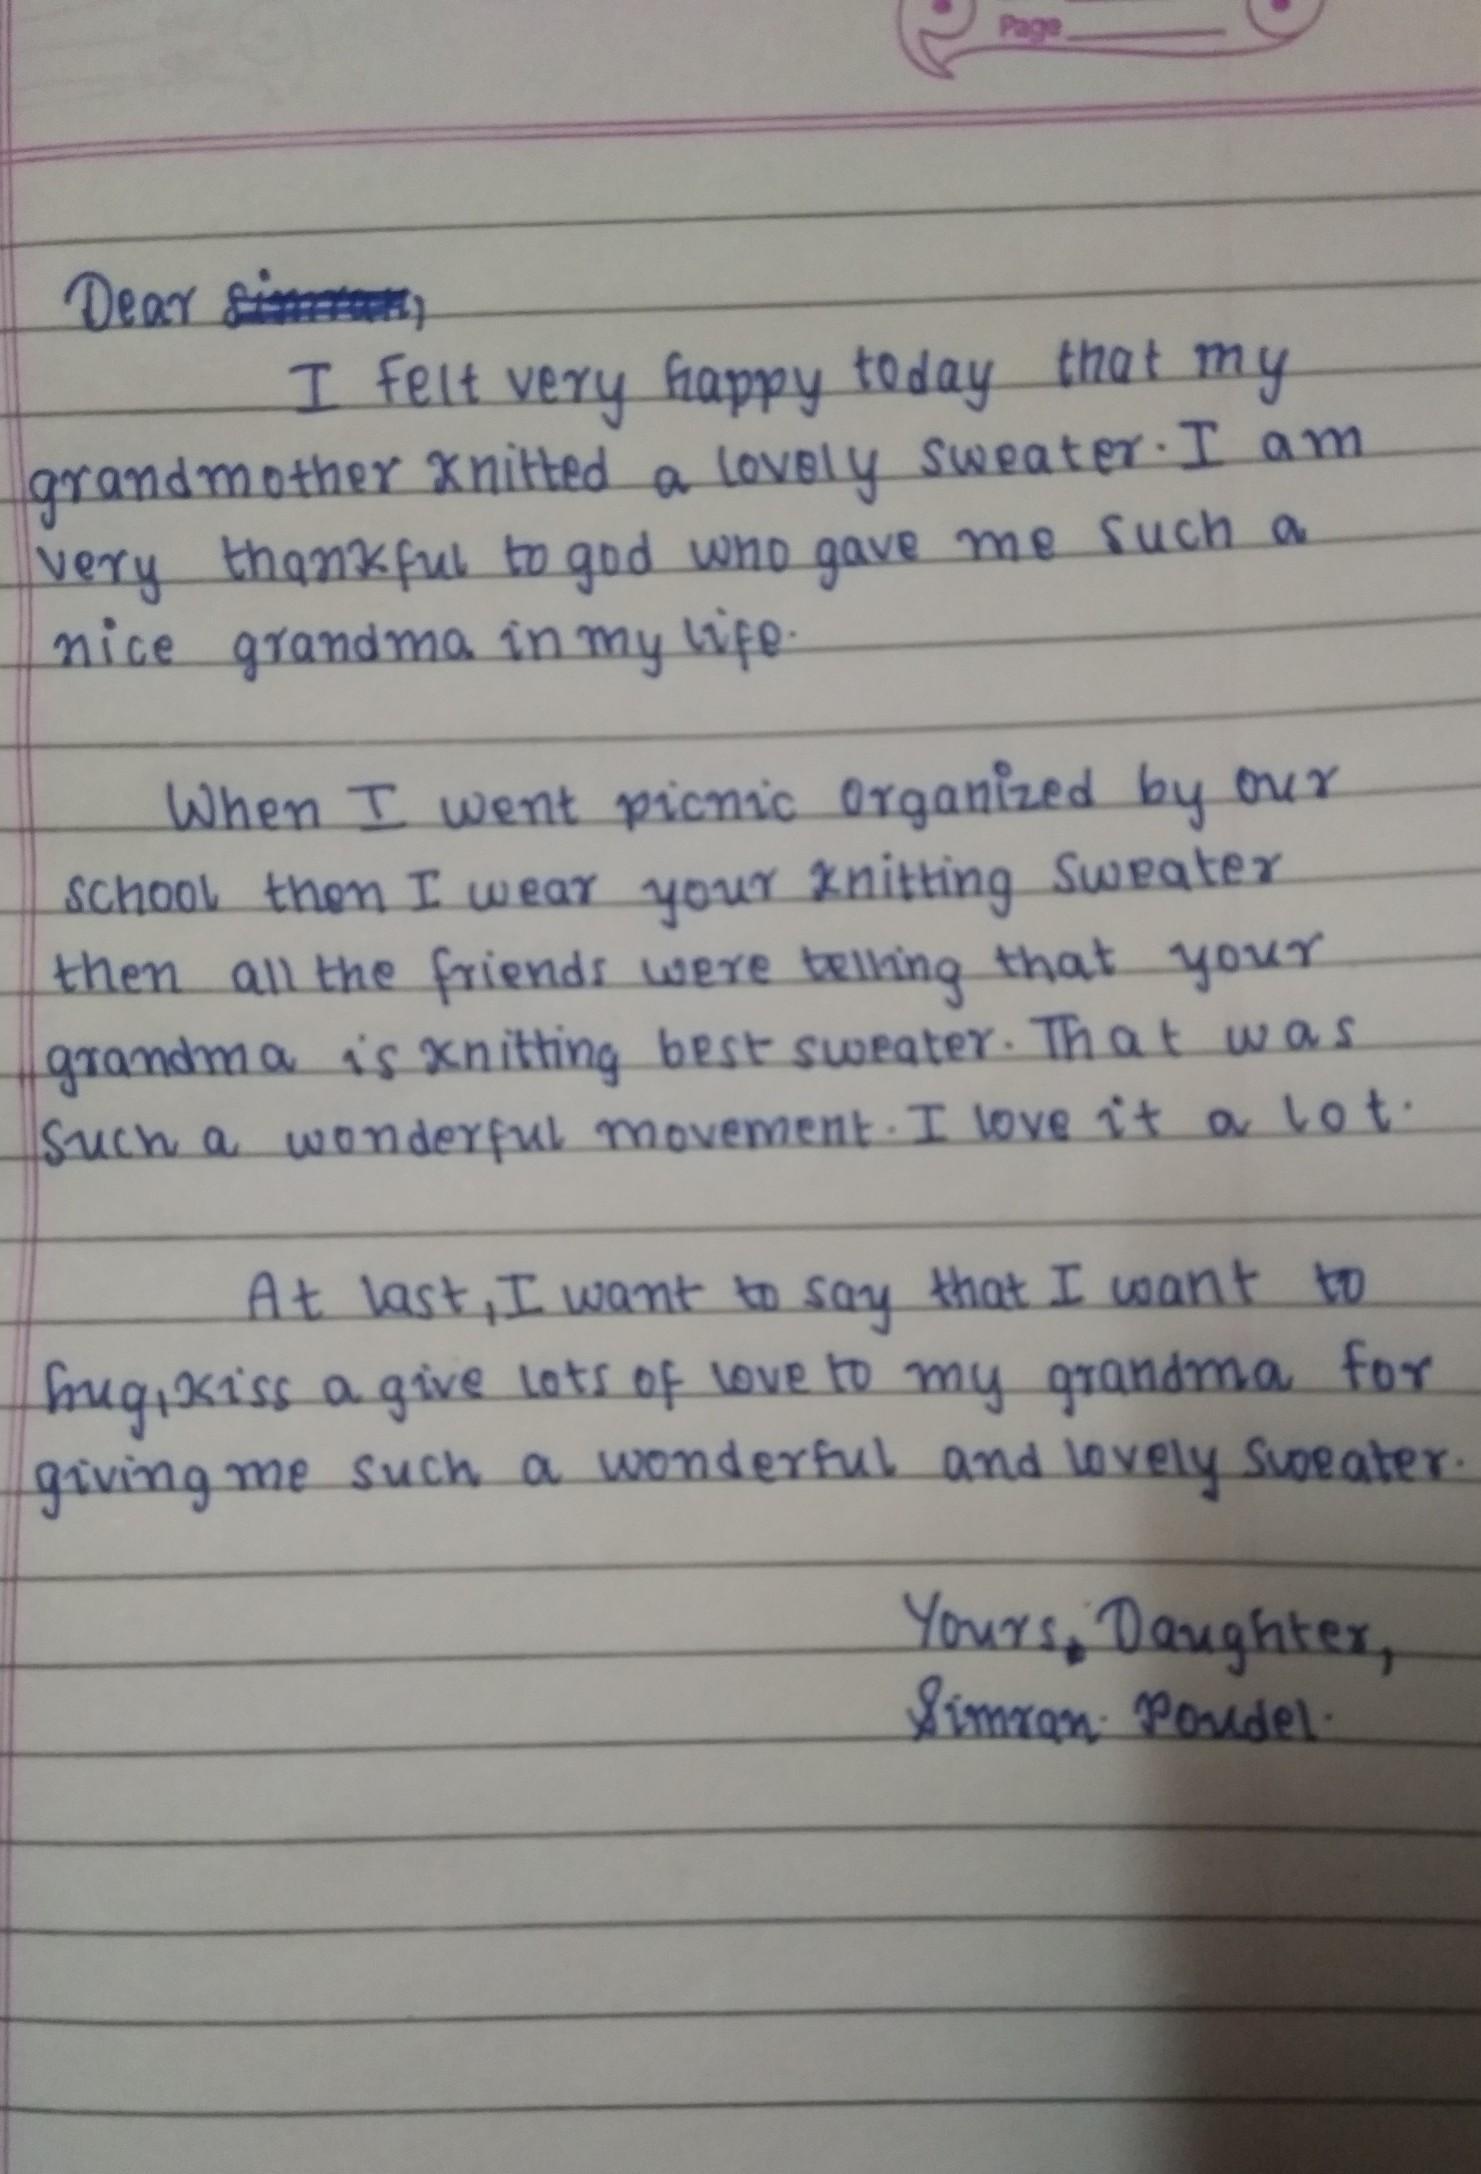 Page
Dear Simran,
I felt very happy today that my
grandmother knitted a lovely sweater. I am
very thankful to god who gave me such a
nice grandma in my life.
When I went picnic organized by our
school then I wear your knitting sweater
then all the friends were telling that your
grandma is knitting best sweater. That was
such a wonderful movement. I love it a lot.
At last, I want to say that I want to
hug, kiss a give lots of love to my grandma for
giving me such a wonderful and lovely sweater.
Yours, Daughter,
Simran Poudel.